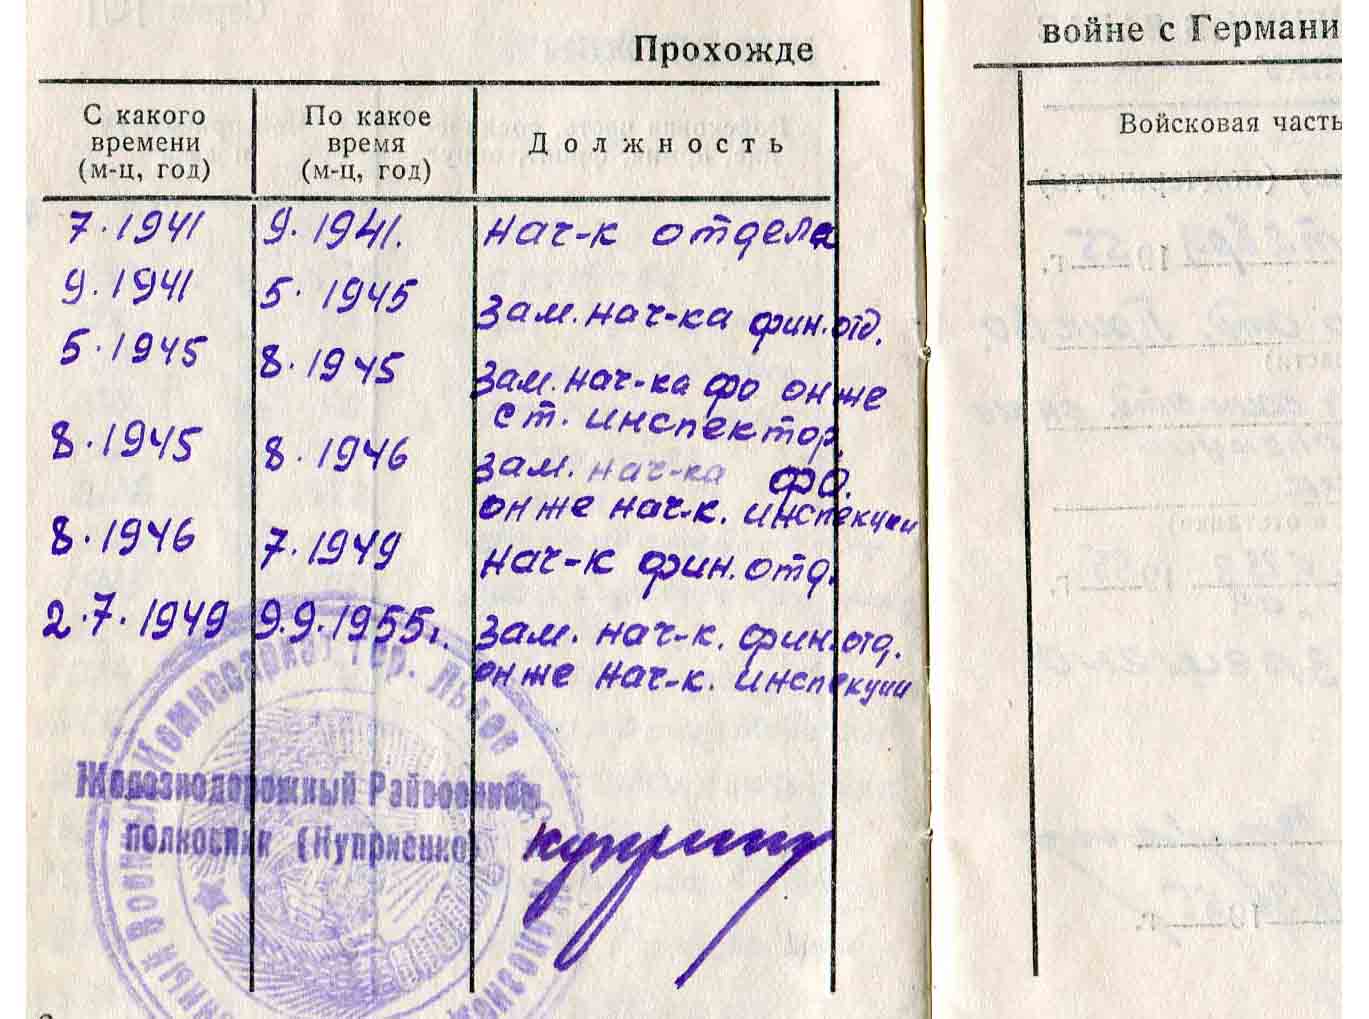 Прохожде
войне с Германи
С какого времени (м-ц, год)
По какое время (м-ц, год)
Должность
Войсковая часть
7.1941 9.1941. нач-к отдела
9.1941 5.1945 зам. нач-ка фин. отд.
5.1945 8.1945 зам. нач-ка фо он же
ст. инспектор.
8.1945 8.1946 зам. нач-ка фо.
он же нач-к. инспекции
8.1946 7.1949 нач-к фин. отд.
2.7.1949 9.9.1955г. зам. нач-к. фин. отд.
он же нач-к. инспекции
Железнодорожный Райвоенком
полковник (Куприенко)